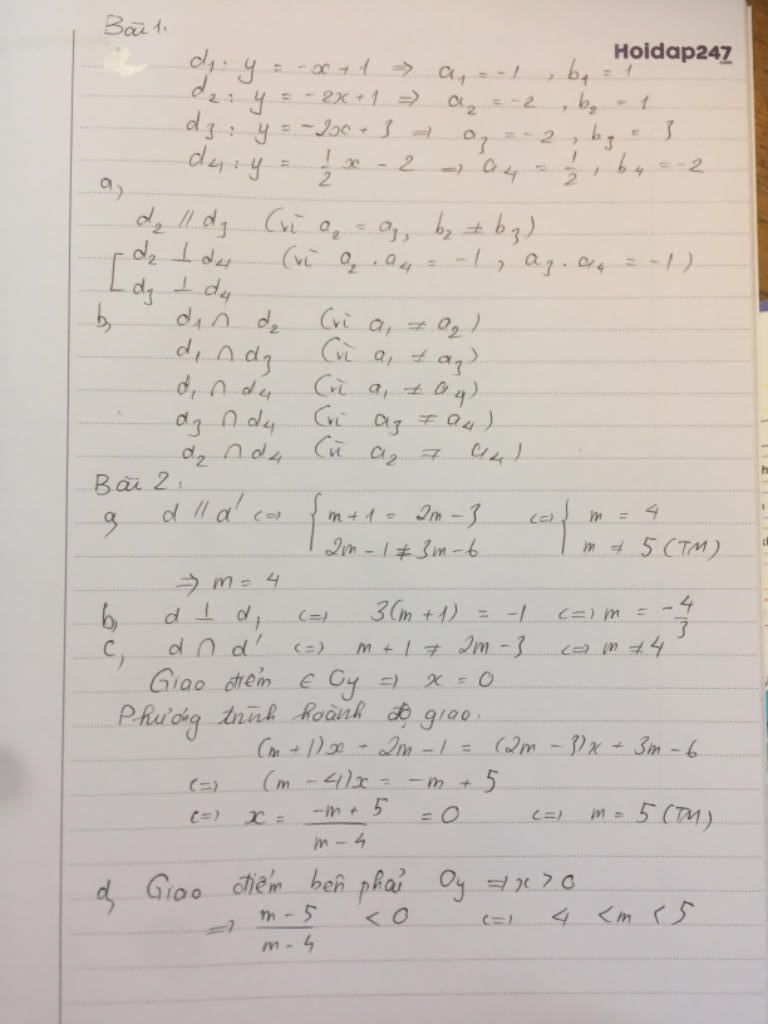 Bài 1.
Hoidap247
d1: y = -x+1 => a1 = -1, b1 = 1
d2: y = -2x+1 => a2 = -2, b2 = 1
d3: y = -2x+3 => a3 = -2, b3 = 3
d4: y = 1/2 x - 2 => a4 = 1/2, b4 = -2
a,
d2 // d3 (vì a2 = a3, b2 ≠ b3)
[ d2 ⊥ d4 (vì a2 . a4 = -1, a3 . a4 = -1)
d3 ⊥ d4
b, d1 ∩ d2 (vì a1 ≠ a2)
d1 ∩ d3 (vì a1 ≠ a3)
d1 ∩ d4 (vì a1 ≠ a4)
d3 ∩ d4 (vì a3 ≠ a4)
d2 ∩ d4 (vì a2 ≠ a4)
Bài 2:
a, d // d' <=> { m+1 = 2m-3 <=> { m = 4
2m-1 ≠ 3m-6 m ≠ 5 (TM)
=> m = 4
b, d ⊥ d1 <=> 3(m+1) = -1 <=> m = -4/3
c, d ∩ d' <=> m+1 ≠ 2m-3 <=> m ≠ 4
Giao điểm ∈ Oy => x = 0
Phương trình hoành độ giao.
(m+1)x + 2m - 1 = (2m-3)x + 3m-6
<=> (m-4)x = -m + 5
<=> x = (-m+5)/(m-4) = 0 <=> m = 5 (TM)
d, Giao điểm bên phải Oy => x > 0
=> (m-5)/(m-4) < 0 <=> 4 < m < 5